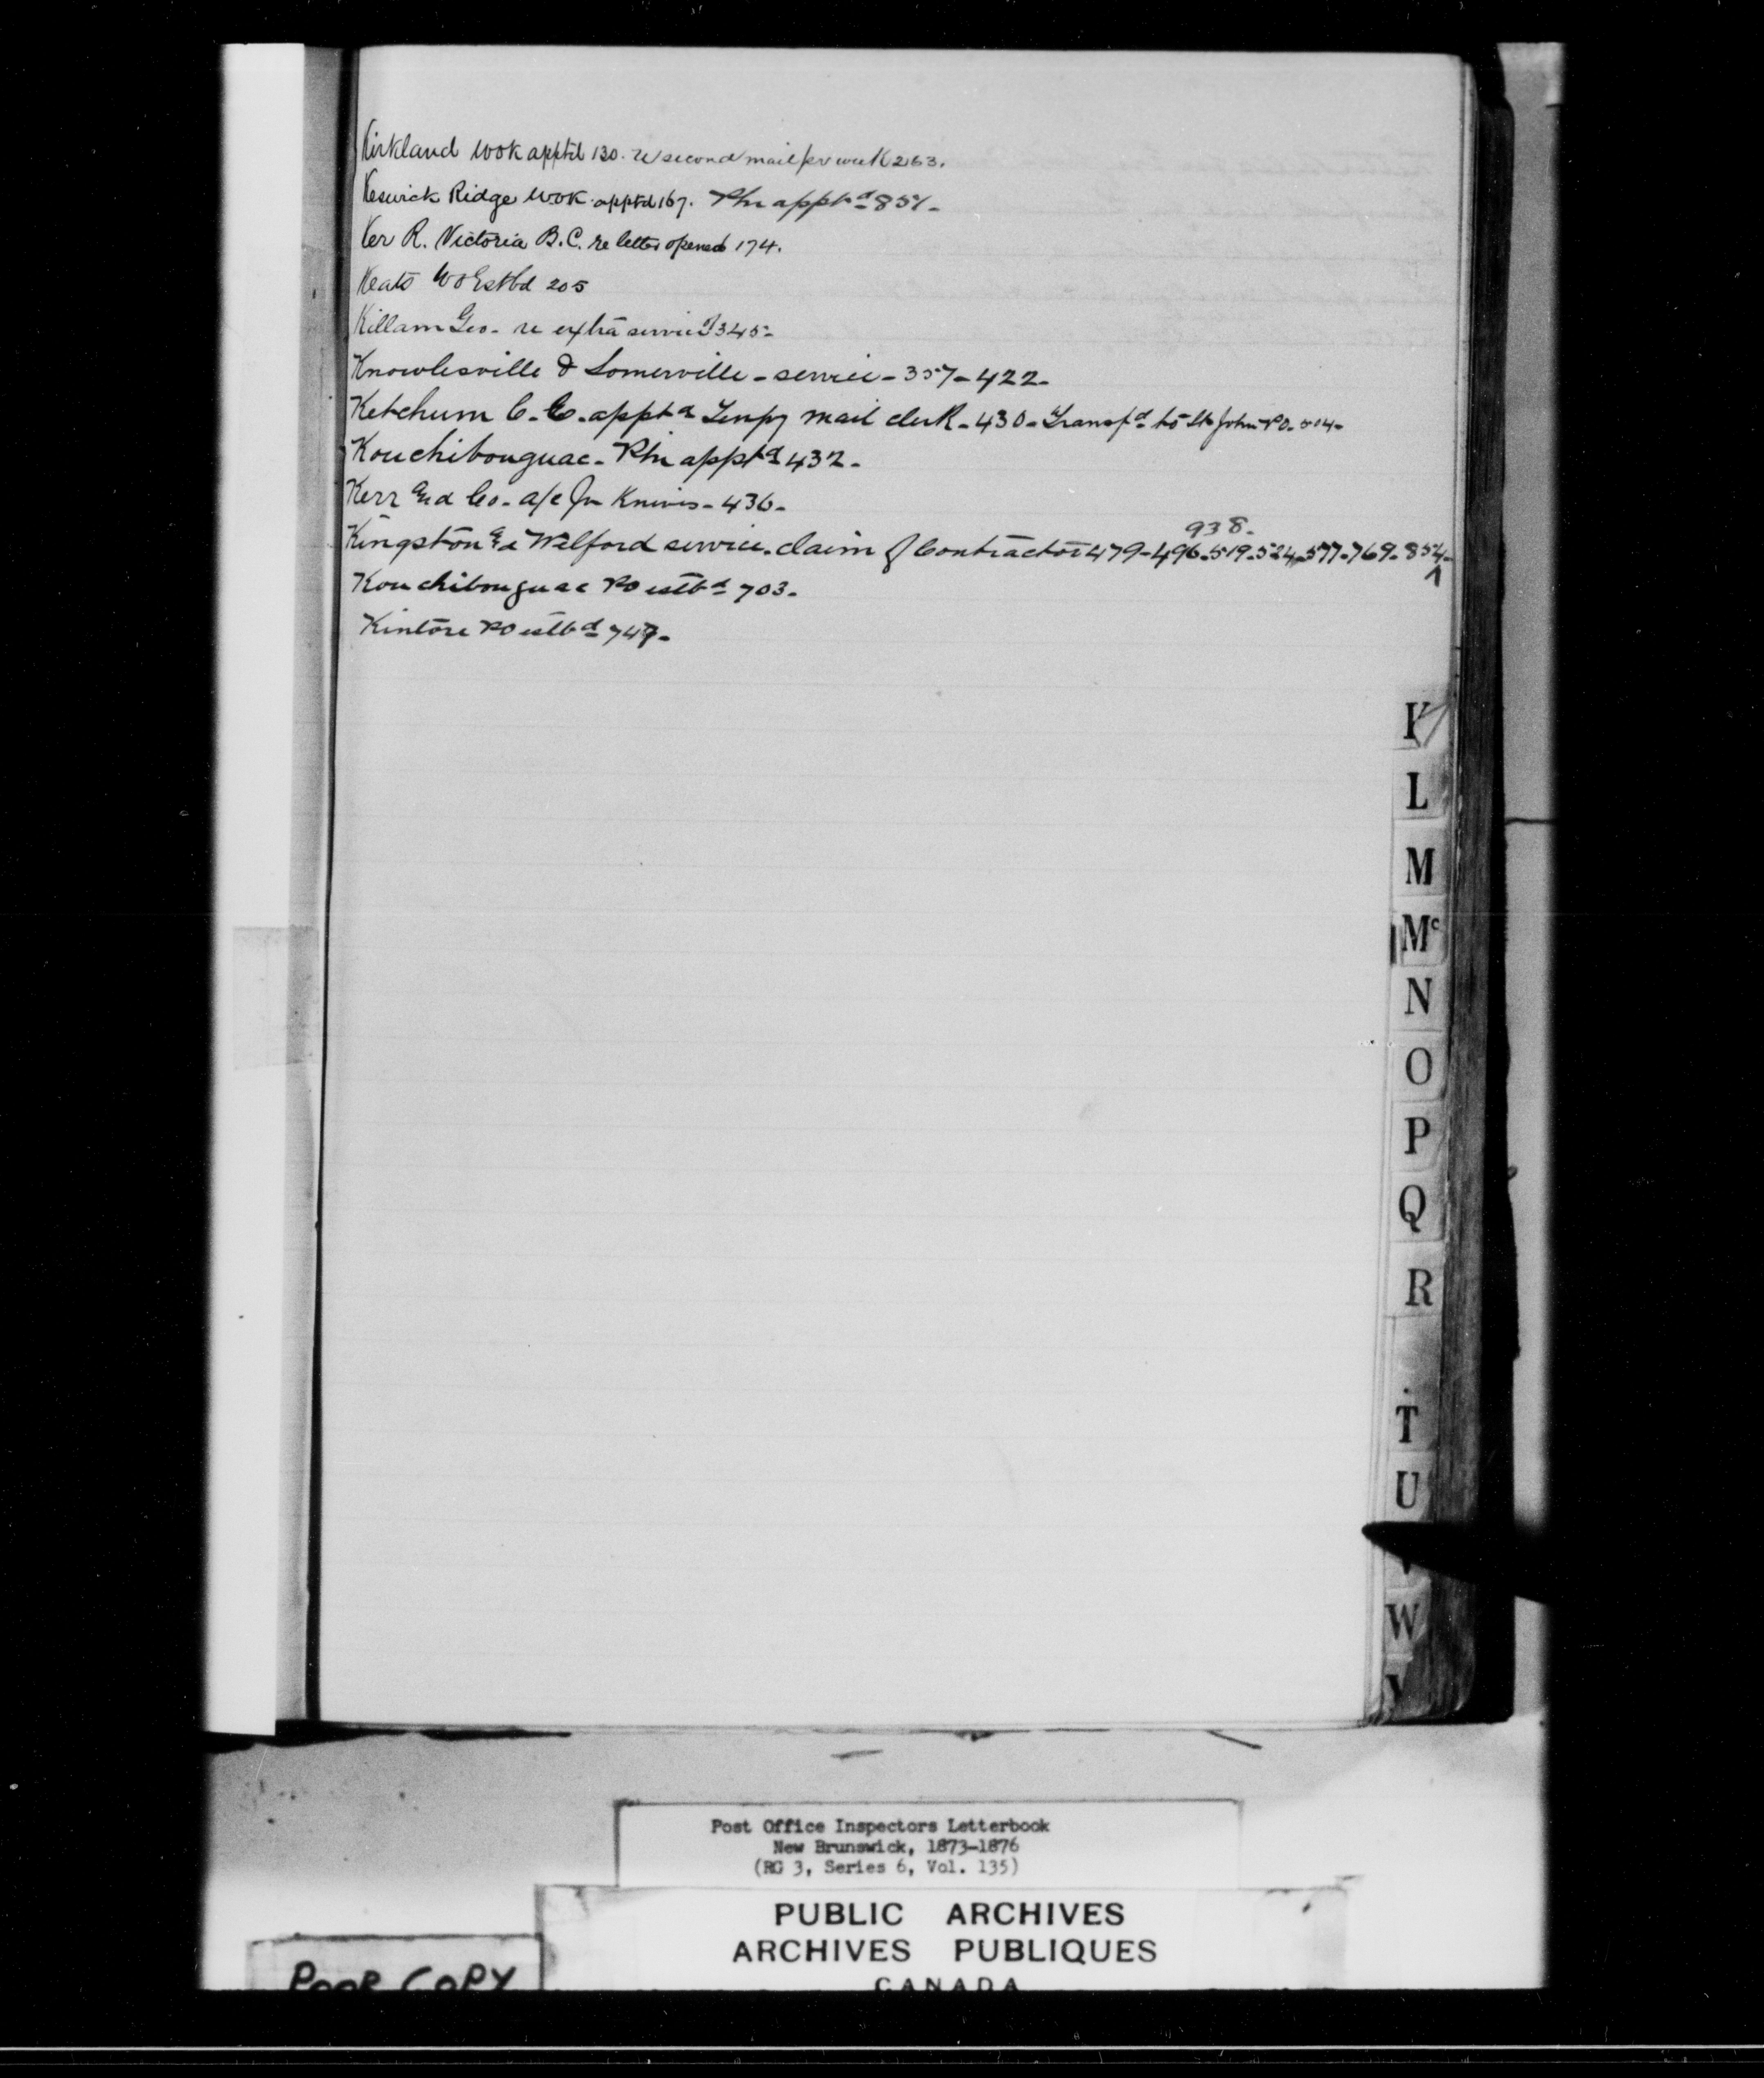 Kirkland WOK apptd 130. re second mail per week 263.
Keswick Ridge WOK. apptd 167. Pm appt^d 851-
Ker R. Victoria B.C. re letter opened 174.
Keats WO Estbd 205
Killam Geo- re extra service 345-
Knowlesville & Somerville - service - 357 - 422-
Ketchum C. C. appt^d Tempy mail clerk - 430 - Transf^d to St John PO. 514-
Kouchibouguac - Pm appt^d 432-
Kerr and Co- a/c for Knives - 436-
938-
Kingston and Welford service. claim of Contractor 479-496-519-524-577-769-854-
Kouchibouguac PO estb^d 703-
Kintore PO estb^d 747-
K
L
M
Mc
N
O
P
Q
R
T
U
V
W
Y
Post Office Inspectors Letterbook
New Brunswick, 1873-1876
(RG 3, Series 6, Vol. 135)
PUBLIC ARCHIVES
ARCHIVES PUBLIQUES
CANADA
POOR COPY